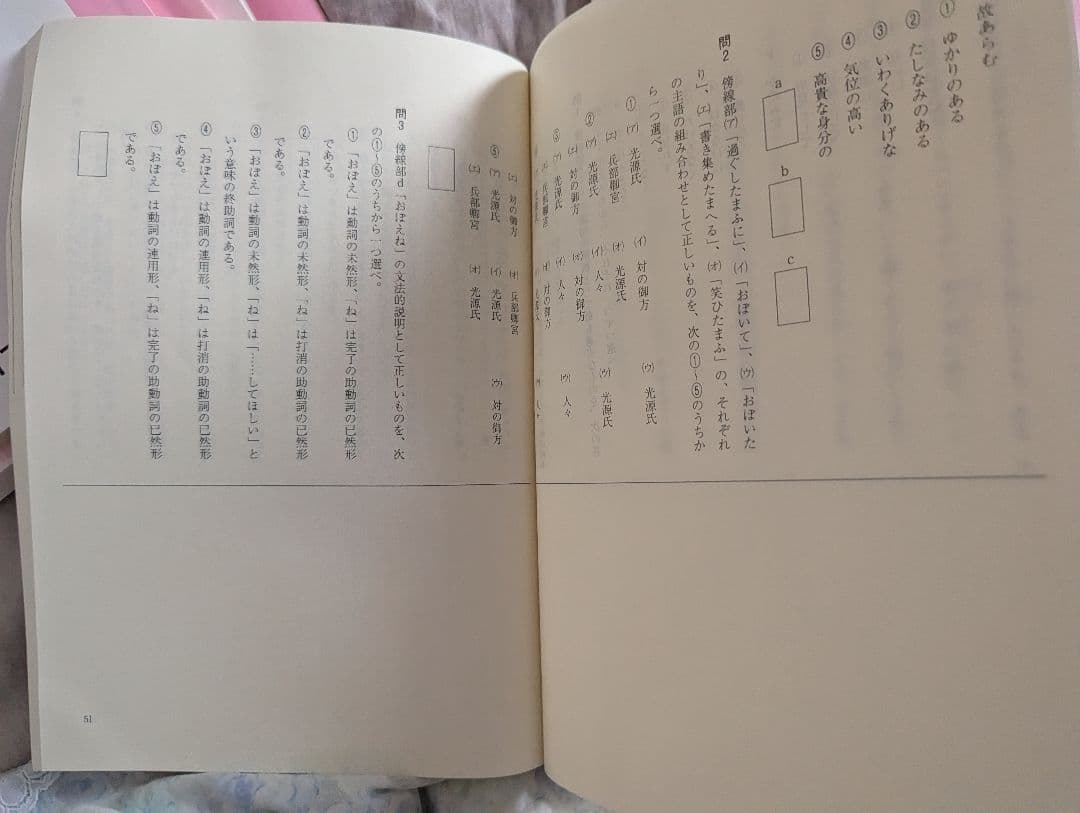 故あらむ
① ゆかりのある
② たしなみのある
③ いわくありげな
④ 気位の高い
⑤ 高貴な身分の
a
b
c
問2 傍線部(ア)「過ぐしたまふに」、(イ)「おぼいて」、(ウ)「おぼいた
り」、(エ)「書き集めたまへる」、(オ)「笑ひたまふ」の、それぞれ
の主語の組み合わせとして正しいものを、次の①〜⑤のうちか
ら一つ選べ。
① (ア) 光源氏 (イ) 対の御方 (ウ) 光源氏
(エ) 兵部卿宮 (オ) 光源氏
② (ア) 光源氏 (イ) 人々 (ウ) 光源氏
(エ) 対の御方 (オ) 対の御方
③ (ア) 光源氏 (イ) 人々 (ウ) 人々
(エ) 兵部卿宮 (オ) 対の御方
(エ) 対の御方 (オ) 兵部卿宮
⑤ (ア) 光源氏 (イ) 光源氏 (ウ) 対の御方
(エ) 兵部卿宮 (オ) 光源氏
問3 傍線部d「おぼえね」の文法的説明として正しいものを、次
の①〜⑤のうちから一つ選べ。
① 「おぼえ」は動詞の未然形、「ね」は完了の助動詞の已然形
である。
② 「おぼえ」は動詞の未然形、「ね」は打消の助動詞の已然形
である。
③ 「おぼえ」は動詞の未然形、「ね」は「……してほしい」と
いう意味の終助詞である。
④ 「おぼえ」は動詞の連用形、「ね」は打消の助動詞の已然形
である。
⑤ 「おぼえ」は動詞の連用形、「ね」は完了の助動詞の已然形
である。
51